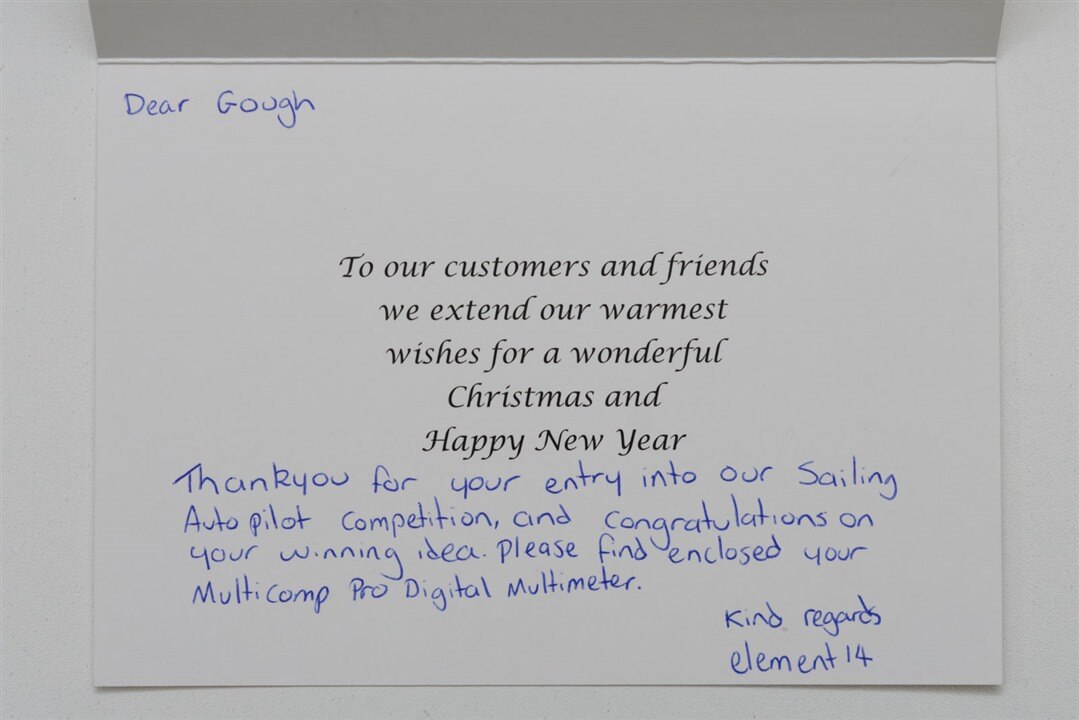 Dear Gough
To our customers and friends
we extend our warmest
wishes for a wonderful
Christmas and
Happy New Year
Thankyou for your entry into our Sailing
Auto pilot competition, and congratulations on
your winning idea. Please find enclosed your
Multicomp Pro Digital Multimeter.
Kind regards
element 14